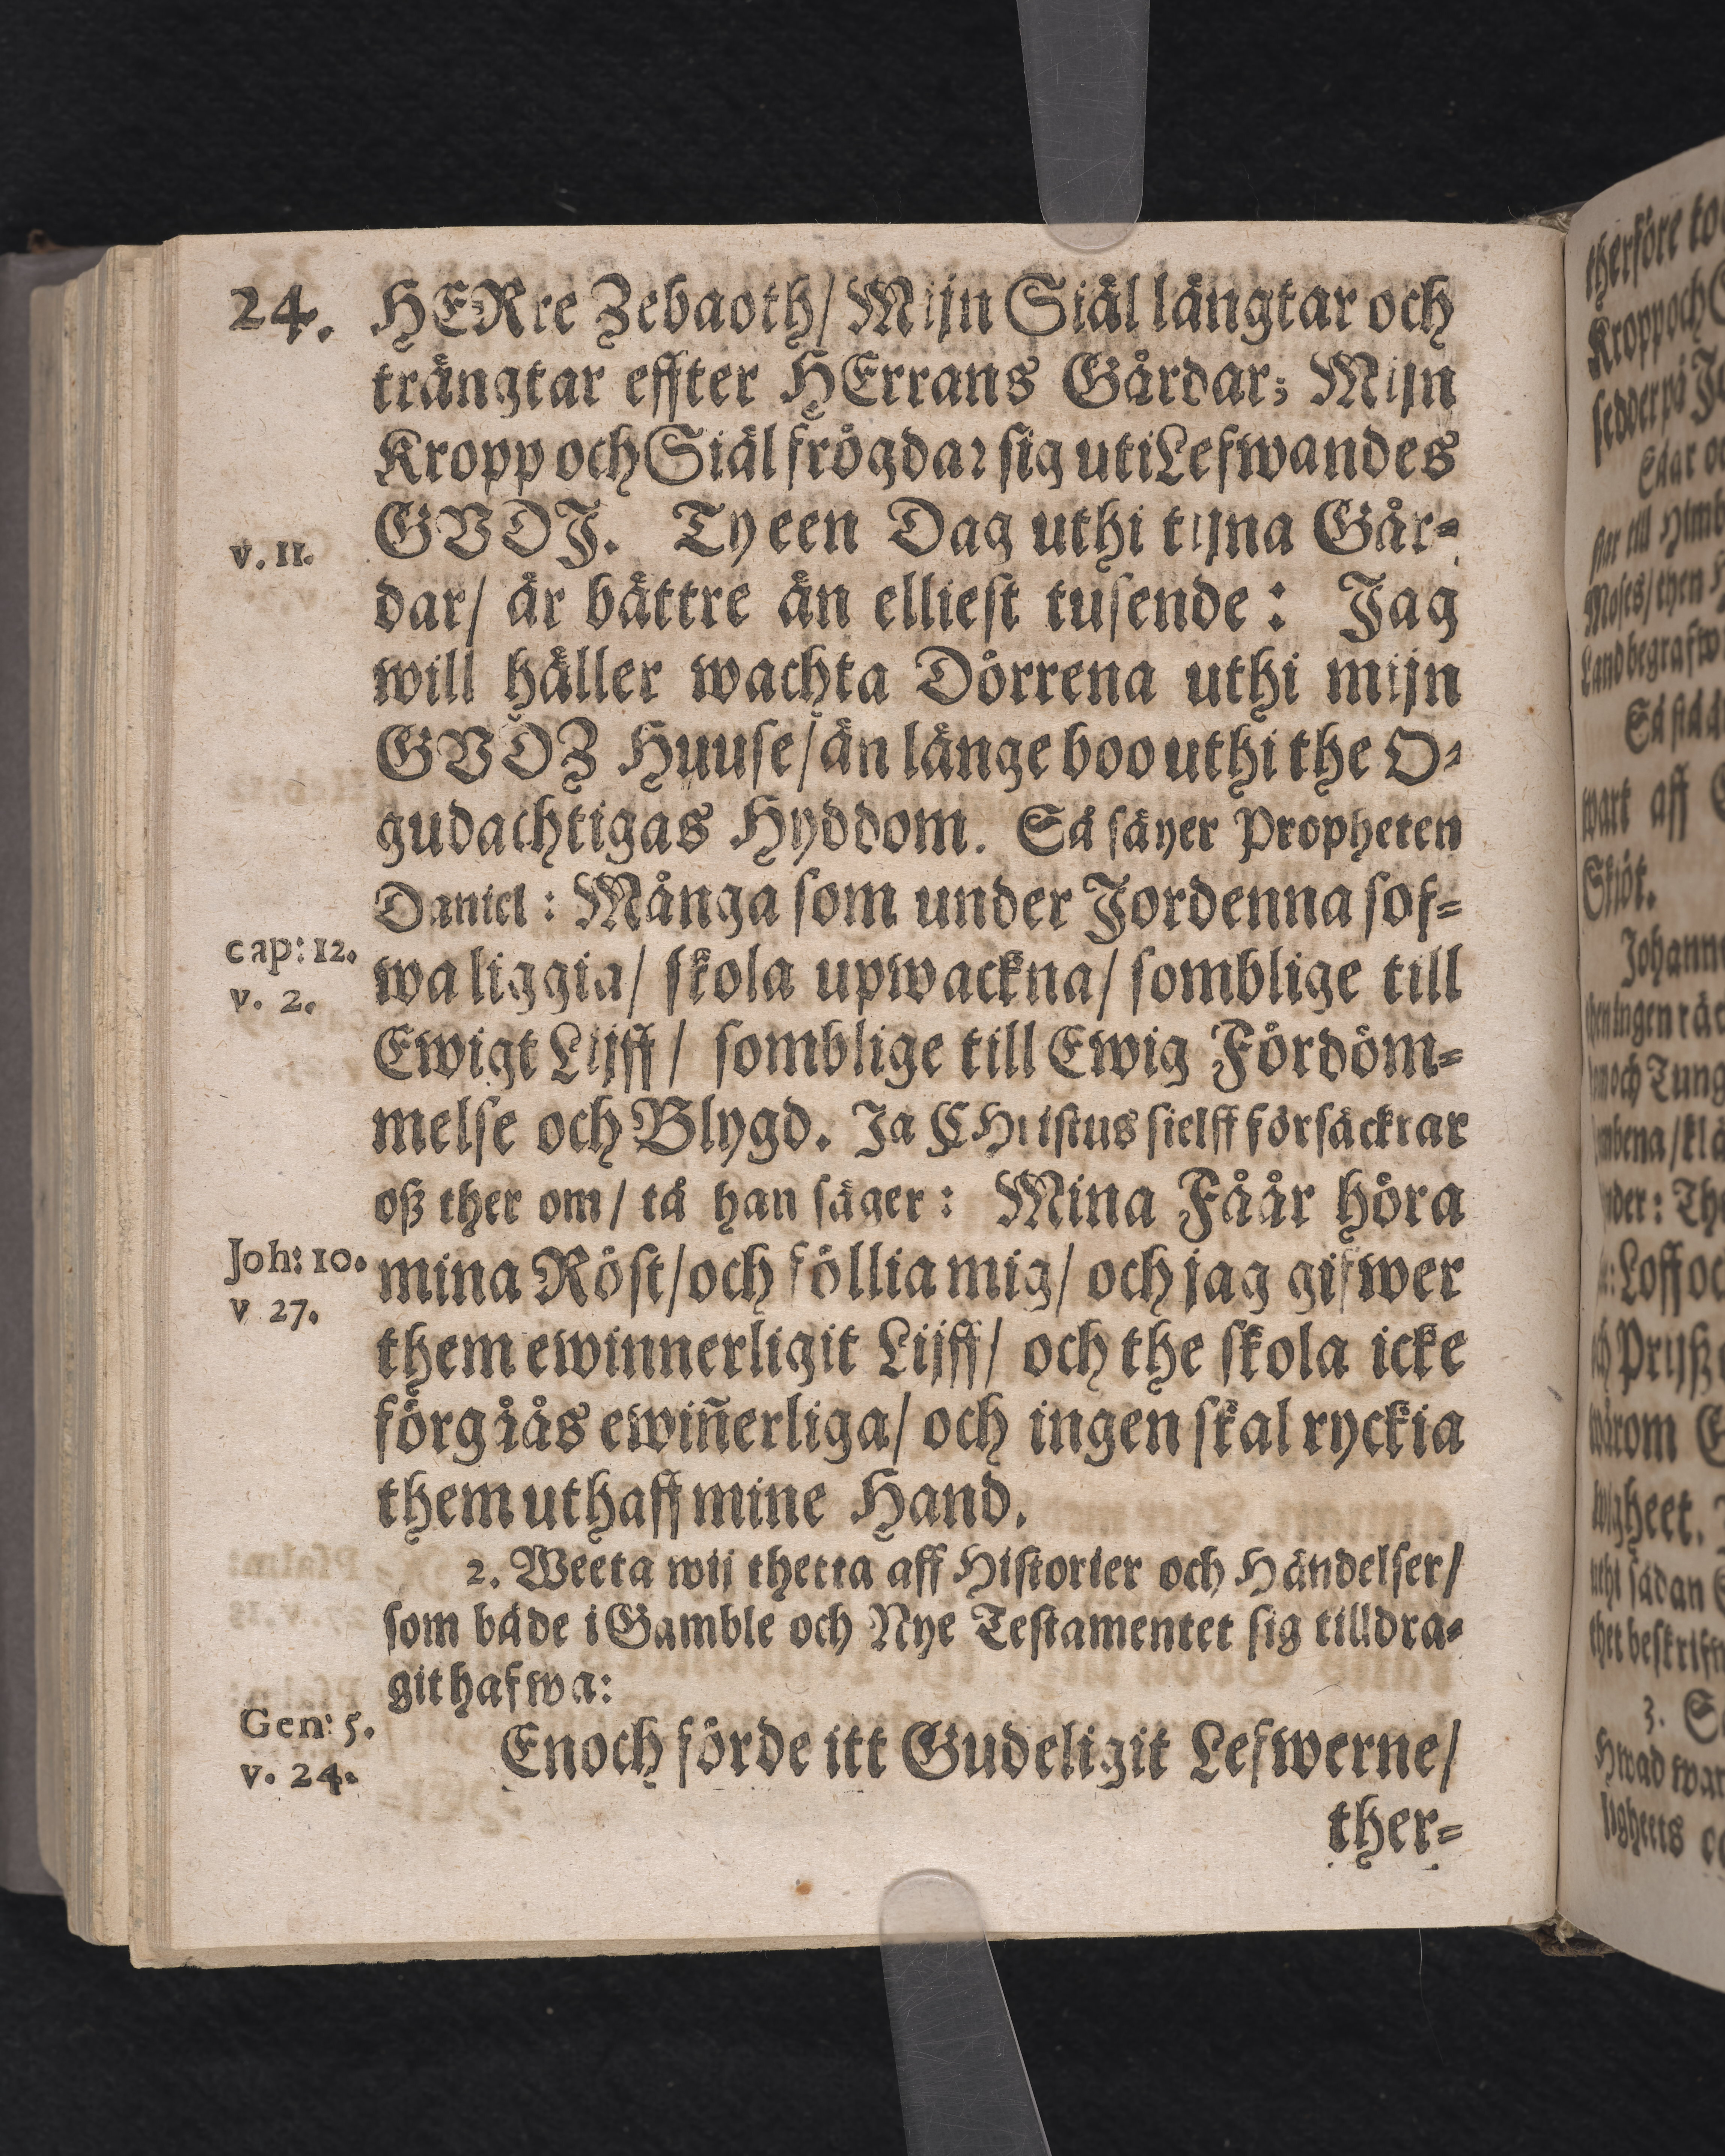 24.
HERre Zebaoth/ Mijn Siäl längtar och
trängtar effter HErrans Gårdar; Mijn
Kropp och Siäl frögdar sig uti Lefwandes
GVDJ. Ty een Dag uthi tijna Går=
v. 11.
dar/ är bättre än elliest tusende: Jag
will häller wachta Dörrena uthi mijn
GVDZ Huuse/ än länge boo uthi the O=
gudachtigas Hyddom. Så säyer Propheten
Daniel: Många som under Jordenna sof=
cap: 12.
wa liggia/ skola upwackna/ somblige till
v. 2.
Ewigt Lijff/ somblige till Ewig Fördöm=
melse och Blygd. Ja CHristus sielff försäckrar
oß ther om/ tå han säger: Mina Fåår höra
Joh: 10.
mina Röst/ och föllia mig/ och jag gifwer
v 27.
them ewinnerligit Lijff/ och the skola icke
förgåås ewiñerliga/ och ingen skal ryckia
them uthaff mine Hand.
2. Weeta wij thetta aff Historier och Händelser/
som både i Gamble och Nye Testamentet sig tilldra=
git hafwa:
Gen: 5.
Enoch förde itt Gudeligit Lefwerne/
v. 24.
ther=
therföre
Kropp och
Moses/ then
Land begrafw
wart aff
Sköt.
then ingen
och Tung
Loff
wårom
wigheet.
uthi sådan
3.
Hwad